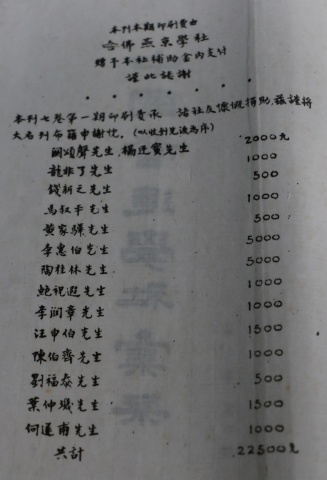 本刊本期印刷費由
哈佛燕京學社
贈予本社補助金內支付
謹此誌謝
本刊七卷第一期印刷費承 諸社友慷慨捐助，茲謹將
大名列布藉申謝忱，(以收到先後為序)
關頌聲先生，楊廷寶先生 2000元
龍非了先生 1000
錢新之先生 500
馬叔平先生 1000
黃家驊先生 500
李惠伯先生 5000
陶桂林先生 5000
鮑祝遐先生 1000
李潤章先生 1000
汪申伯先生 1500
陳伯齊先生 1000
劉福泰先生 500
葉仲璣先生 1500
何遂甫先生 1000
共計 22500元